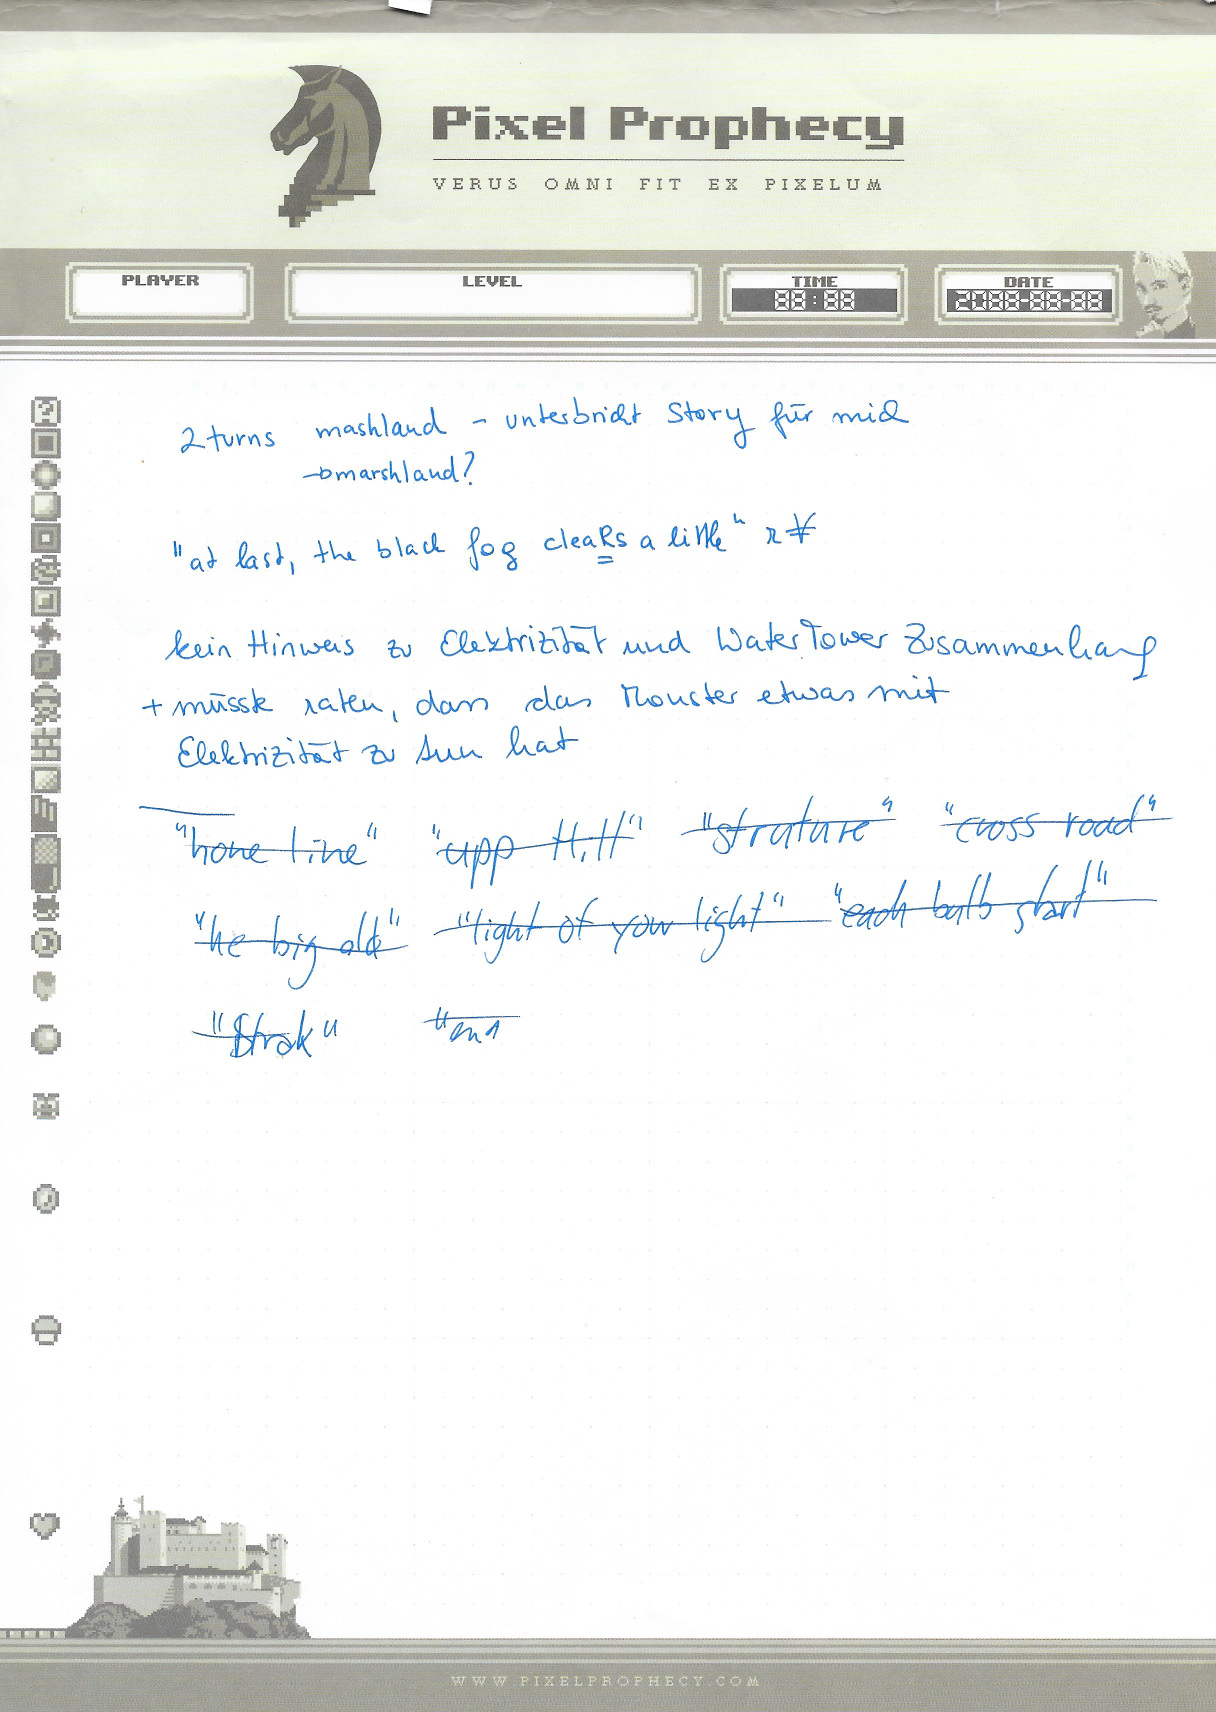 Pixel Prophecy
VERUS OMNI FIT EX PIXELUM
PLAYER
LEVEL
TIME
88:88
DATE
2088-88-88
2 turns mashland - unterbricht Story für mich
→ marshland?
"at last, the black fog cleaRs a little"
kein Hinweis zu Elektrizität und WaterTower Zusammenhang
+ müsste raten, dass das Monster etwas mit
Elektrizität zu tun hat
"home line" "upp Hill" "strature" "cross road"
"he big old" "light of your light" "each bulb start"
"Strak"
WWW.PIXELPROPHECY.COM